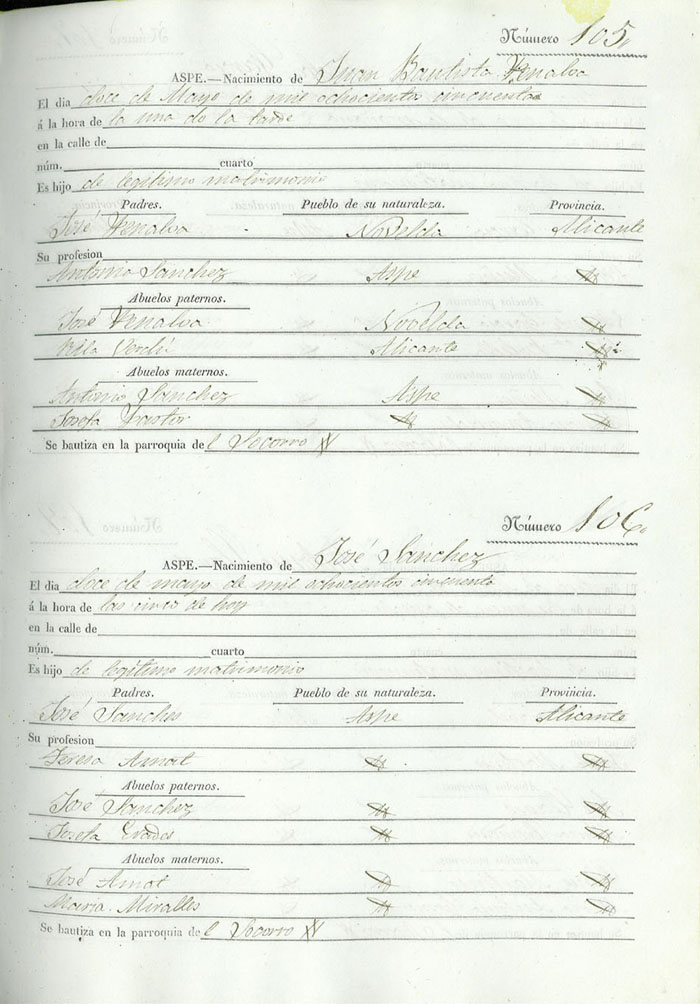 Número 105
ASPE.—Nacimiento de Juan Bautista Penalva
El dia doce de Mayo de mil ochocienta cincuenta
á la hora de la una de la tarde
en la calle de
núm. cuarto
Es hijo de legitimo matrimonio
Padres. Pueblo de su naturaleza. Provincia.
José Penalva Novelda Alicante
Su profesion
Antonia Sanchez Aspe
Abuelos paternos.
José Penalva Novelda
Alicante
Abuelos maternos.
Antonio Sanchez Aspe
Josefa Pastor
Se bautiza en la parroquia del Socorro
Número 106
ASPE.—Nacimiento de José Sanchez
El dia doce de mayo de mil ochocientos cincuenta
á la hora de las cinco de hoy
en la calle de
núm. cuarto
Es hijo de legitimo matrimonio
Padres. Pueblo de su naturaleza. Provincia.
José Sanches Aspe Alicante
Su profesion
Teresa Amat
Abuelos paternos.
José Sanchez
Josefa
Abuelos maternos.
José Amat
Maria Miralles
Se bautiza en la parroquia del Socorro